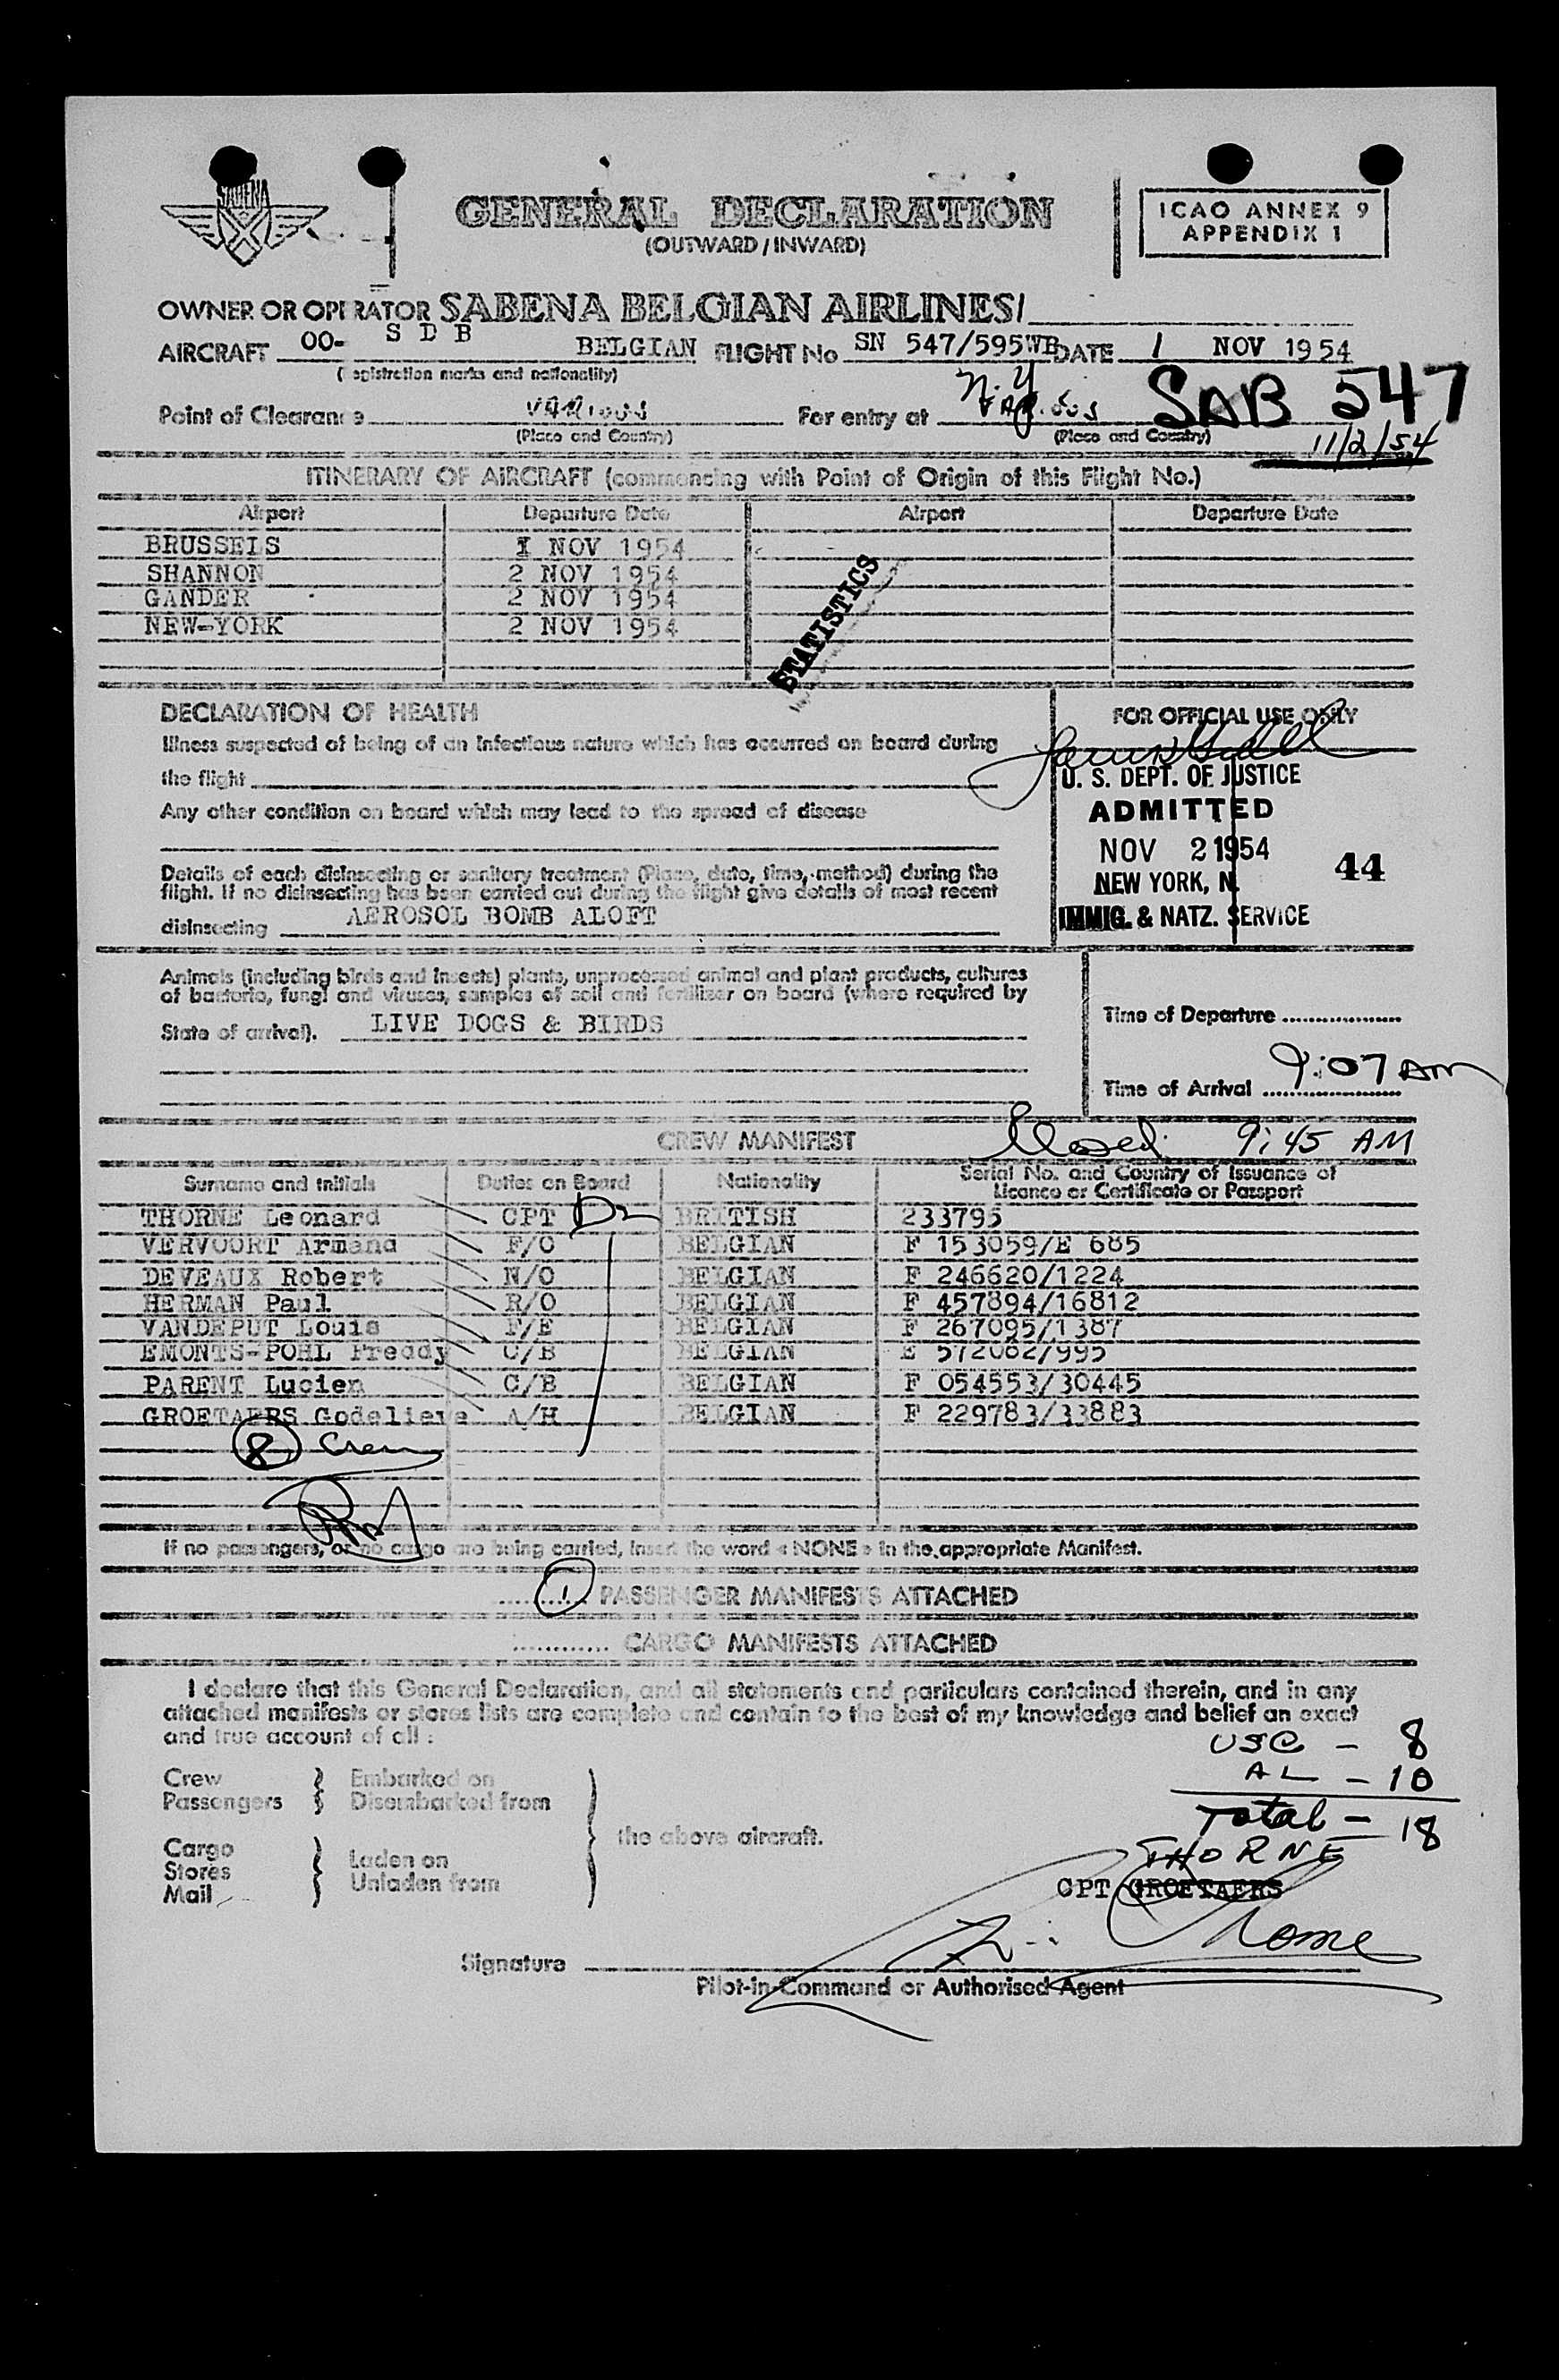 SABENA
GENERAL DECLARATION
(OUTWARD / INWARD)
ICAO ANNEX 9
APPENDIX 1
OWNER OR OPERATOR SABENA BELGIAN AIRLINES/
AIRCRAFT OO- S D B BELGIAN FLIGHT No SN 547/595WB DATE 1 NOV 1954
(Registration marks and nationality)
N.Y SAB 547
Point of Clearance VARIOUS For entry at VARIOUS
(Place and Country) (Place and Country) 11/2/54
ITINERARY OF AIRCRAFT (commencing with Point of Origin of this Flight No.)
Airport Departure Date Airport Departure Date
BRUSSELS 1 NOV 1954
SHANNON 2 NOV 1954
GANDER 2 NOV 1954
NEW-YORK 2 NOV 1954
STATISTICS
DECLARATION OF HEALTH
Illness suspected of being of an infectious nature which has occurred on board during
the flight
Any other condition on board which may lead to the spread of disease
Details of each disinsecting or sanitary treatment (Place, date, time, method) during the
flight. If no disinsecting has been carried out during the flight give details of most recent
disinsecting AEROSOL BOMB ALOFT
FOR OFFICIAL USE ONLY
U. S. DEPT. OF JUSTICE
ADMITTED
NOV 2 1954 44
NEW YORK, N.
IMMIG. & NATZ. SERVICE
Animals (including birds and insects) plants, unprocessed animal and plant products, cultures
of bacteria, fungi and viruses, samples of soil and fertilizer on board (where required by
State of arrival). LIVE DOGS & BIRDS
Time of Departure
Time of Arrival 9:07 AM
CREW MANIFEST Closed 9:45 AM
Surname and initials Duties on Board Nationality Serial No. and Country of Issuance of
Licence or Certificate or Passport
THORNE Leonard CPT BRITISH 233795
VERVOORT Armand F/O BELGIAN F 153059/E 685
DEVEAUX Robert N/O BELGIAN F 246620/1224
HERMAN Paul R/O BELGIAN F 457894/16812
VANDEPUT Louis F/E BELGIAN F 267095/1387
EMONTS-POHL Freddy C/B BELGIAN E 572062/995
PARENT Lucien C/B BELGIAN F 054553/30445
GROETAERS Godelieve A/H BELGIAN F 229783/33883
8 Crew
If no passengers, or no cargo are being carried, insert the word « NONE » in the appropriate Manifest.
1 PASSENGER MANIFESTS ATTACHED
............ CARGO MANIFESTS ATTACHED
I declare that this General Declaration, and all statements and particulars contained therein, and in any
attached manifests or stores lists are complete and contain to the best of my knowledge and belief an exact
and true account of all :
USC - 8
AL - 10
Total - 18
Crew Embarked on
Passengers Disembarked from
the above aircraft.
Cargo
Stores Laden on
Mail Unladen from
THORNE
CPT GROETAERS
Signature
Pilot-in-Command or Authorised Agent